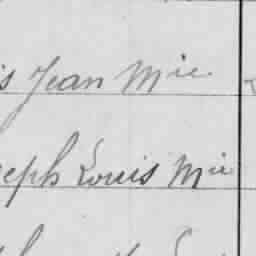 s Jean Mie
seph Louis Mie